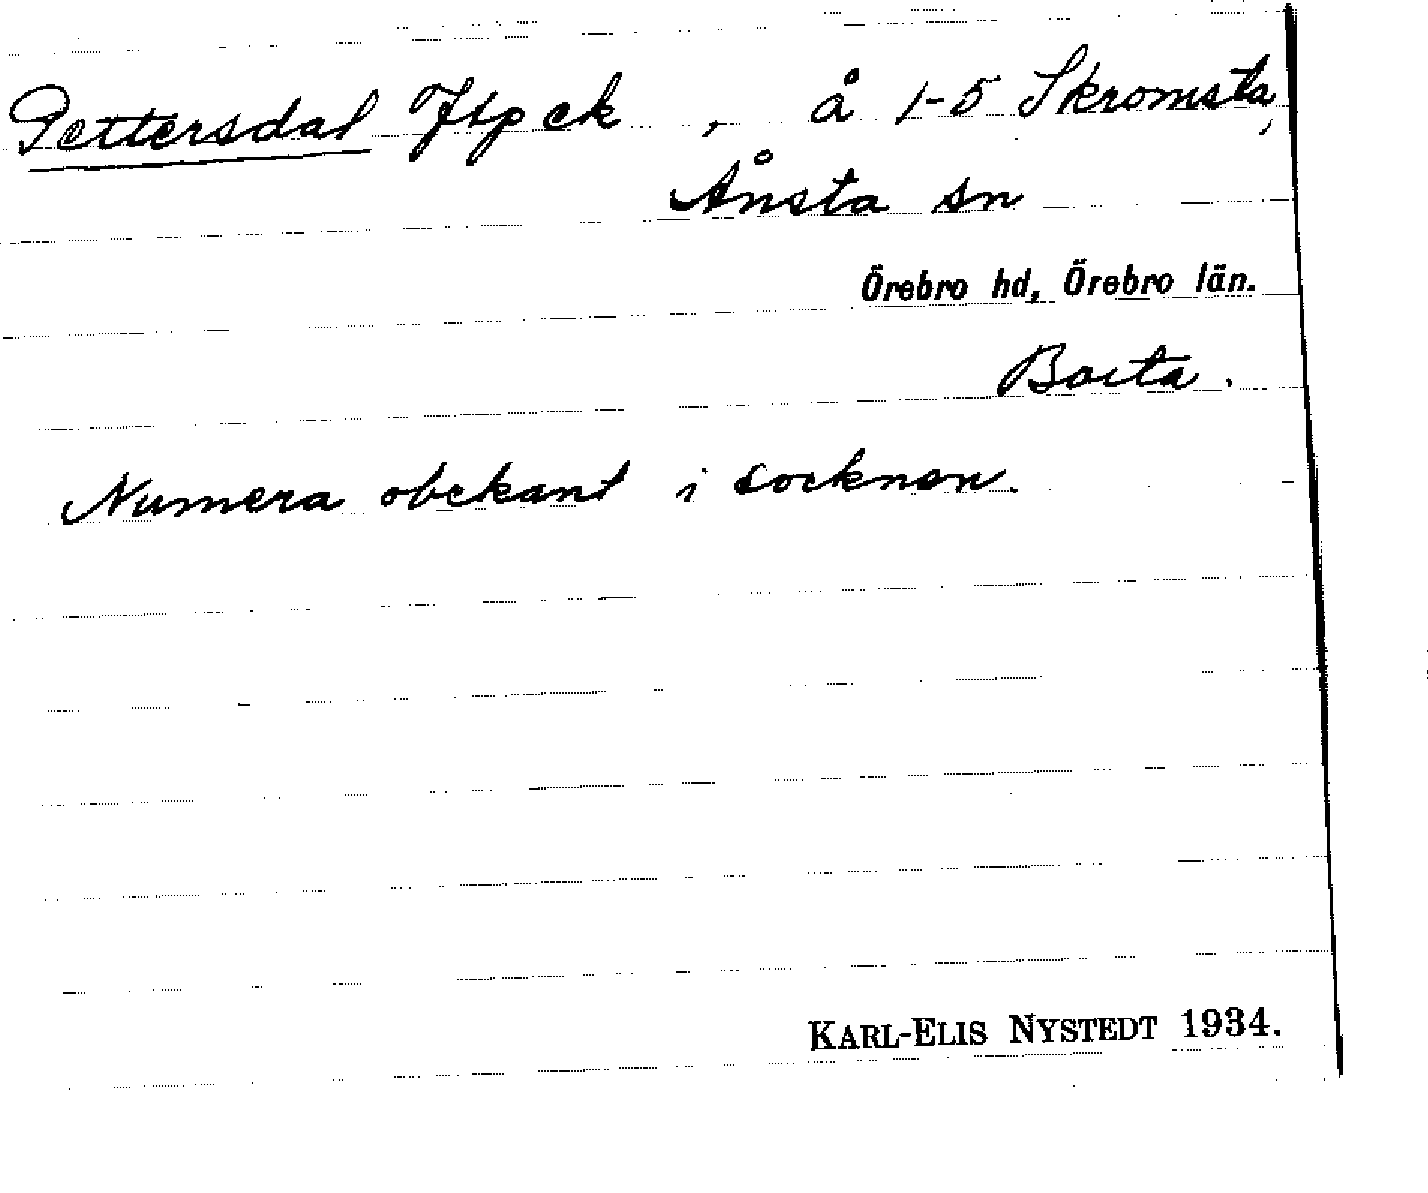 Pettersdal Jtp ek , å 1-5 Skromsta,
Ånsta sn
Örebro hd, Örebro län.
Borta.
Numera obekant i socknen.
KARL-ELIS NYSTEDT 1934.